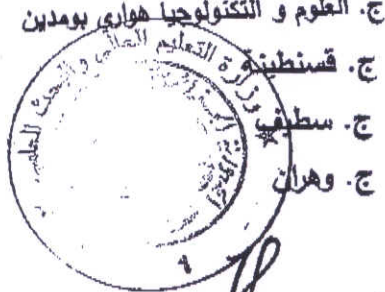 ج. العلوم و التكنولوجيا هواري بومدين
ج. قسنطينة
ج. سطيف
ج. وهران
وزارة التعليم العالي والبحث العلمي